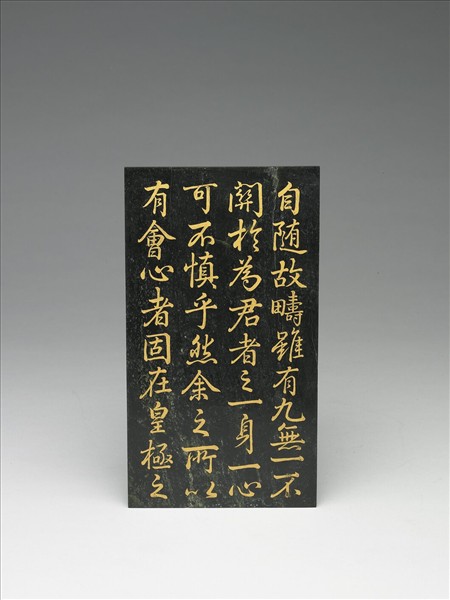 自随故疇雖有九無一不
關於為君者之一身一心
可不慎乎然余之所以
有會心者固在皇極之